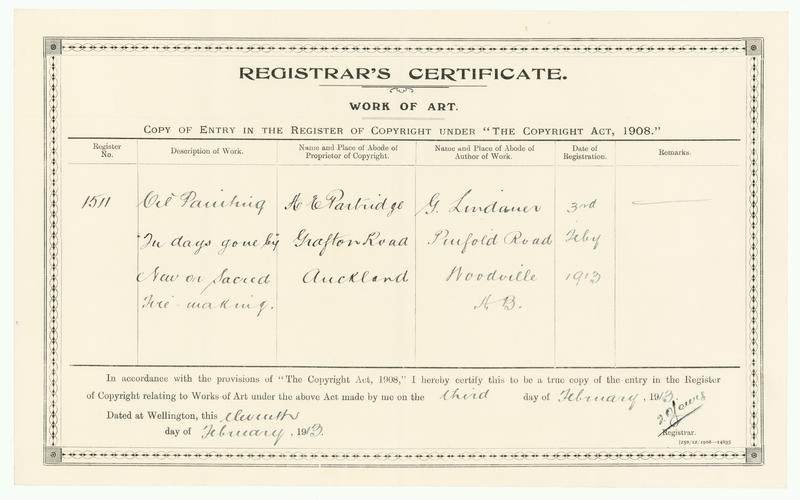 REGISTRAR'S CERTIFICATE.
WORK OF ART.
COPY OF ENTRY IN THE REGISTER OF COPYRIGHT UNDER "THE COPYRIGHT ACT, 1908."
Register No. Description of Work. Name and Place of Abode of Proprietor of Copyright. Name and Place of Abode of Author of Work. Date of Registration. Remarks.
1511 Oil Painting A E Partridge G. Lindauer 3rd
"In days gone by Grafton Road Pinfold Road Feby
New or Sacred Auckland Woodville 1913
Fire-making. H B.
In accordance with the provisions of "The Copyright Act, 1908," I hereby certify this to be a true copy of the entry in the Register
of Copyright relating to Works of Art under the above Act made by me on the third day of February, 1913.
Dated at Wellington, this eleventh
day of February, 1913.
Registrar.
[250/12/1908—14835